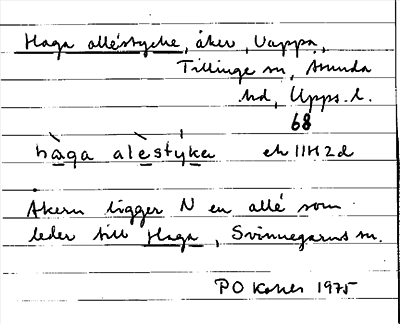 Haga alléstycke, åker, Vappa,
Tillinge sn, Åsunda
hd, Upps. l.
68
hàga alèstýkə ek 11H2d
Åkern ligger N en allé som
leder till Haga, Svinnegarns sn.
PO 1975